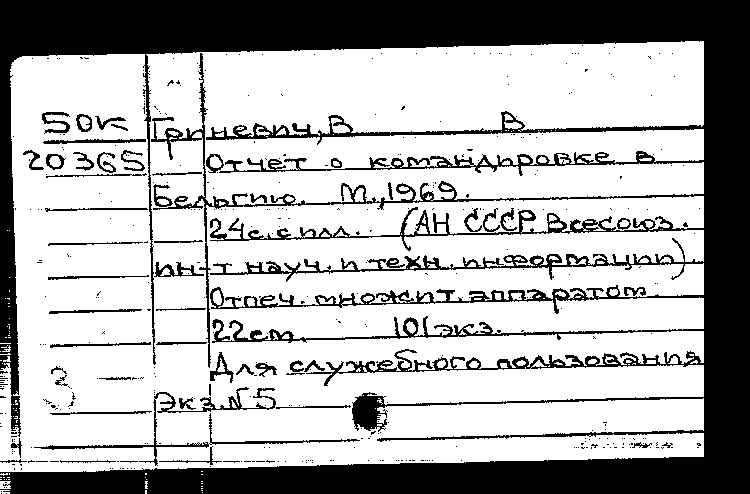 50к Гриневич, В В
20365 Отчет о командировке в
Бельгию. М., 1969.
24с. с илл. (АН СССР. Всесоюз.
ин-т науч. и техн. информации).
Отпеч. множит. аппаратом.
22см. 101экз.
Для служебного пользования
З Экз. № 5